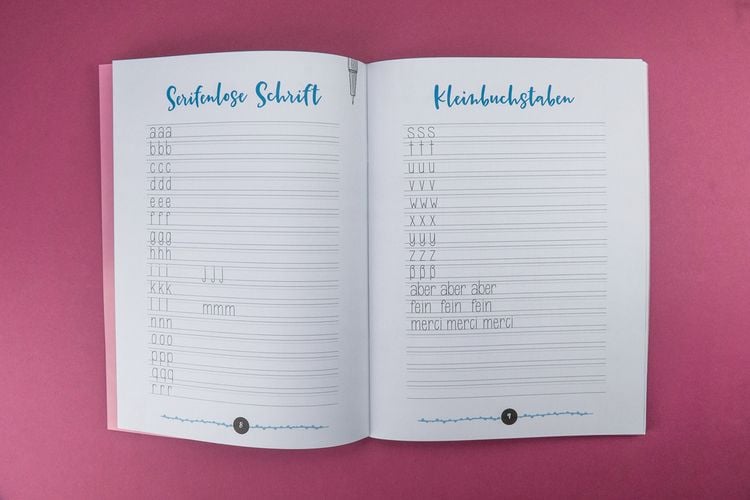 Serifenlose Schrift
aaa
bbb
ccc
ddd
eee
fff
ggg
hhh
iii jjj
kkk
lll mmm
nnn
ooo
ppp
qqq
rrr
8
Kleinbuchstaben
sss
ttt
uuu
vvv
www
xxx
yyy
zzz
ßßß
aber aber aber
fein fein fein
merci merci merci
9